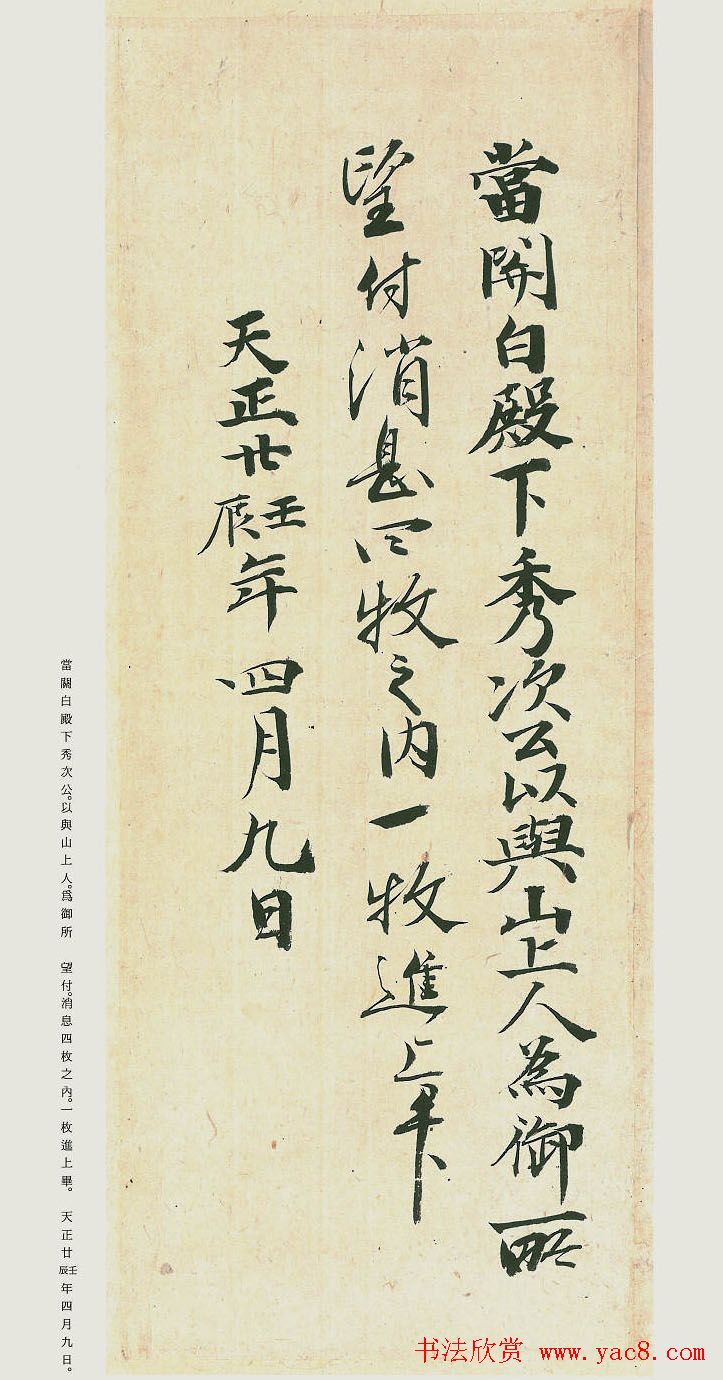 當関白殿下秀次公以與山上人為御所
望付消息四牧之内一牧進上畢
天正廿壬辰年四月九日
當關白殿下秀次公。以與山上人。爲御所　望付。消息四枚之內。一枚進上畢。　天正廿壬辰年四月九日。
书法欣赏 www.yac8.com